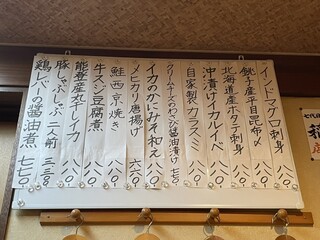 インドマグロ刺身
銚子産平目昆布〆 八八〇
北海道産ホタテ刺身 八八〇
沖漬けイカルイベ 八八〇
自家製カラスミ 八八〇
クリームチーズのわさび醤油漬け 七七〇
イカのかにみそ和え 八八〇
メヒカリ唐揚げ 六六〇
鮭西京焼き 八八〇
牛スジ豆腐煮 八八〇
能登産丸干しイカ 八八〇
豚しゃぶしゃぶ二人前 三三〇
鶏レバーの醤油煮 七七〇